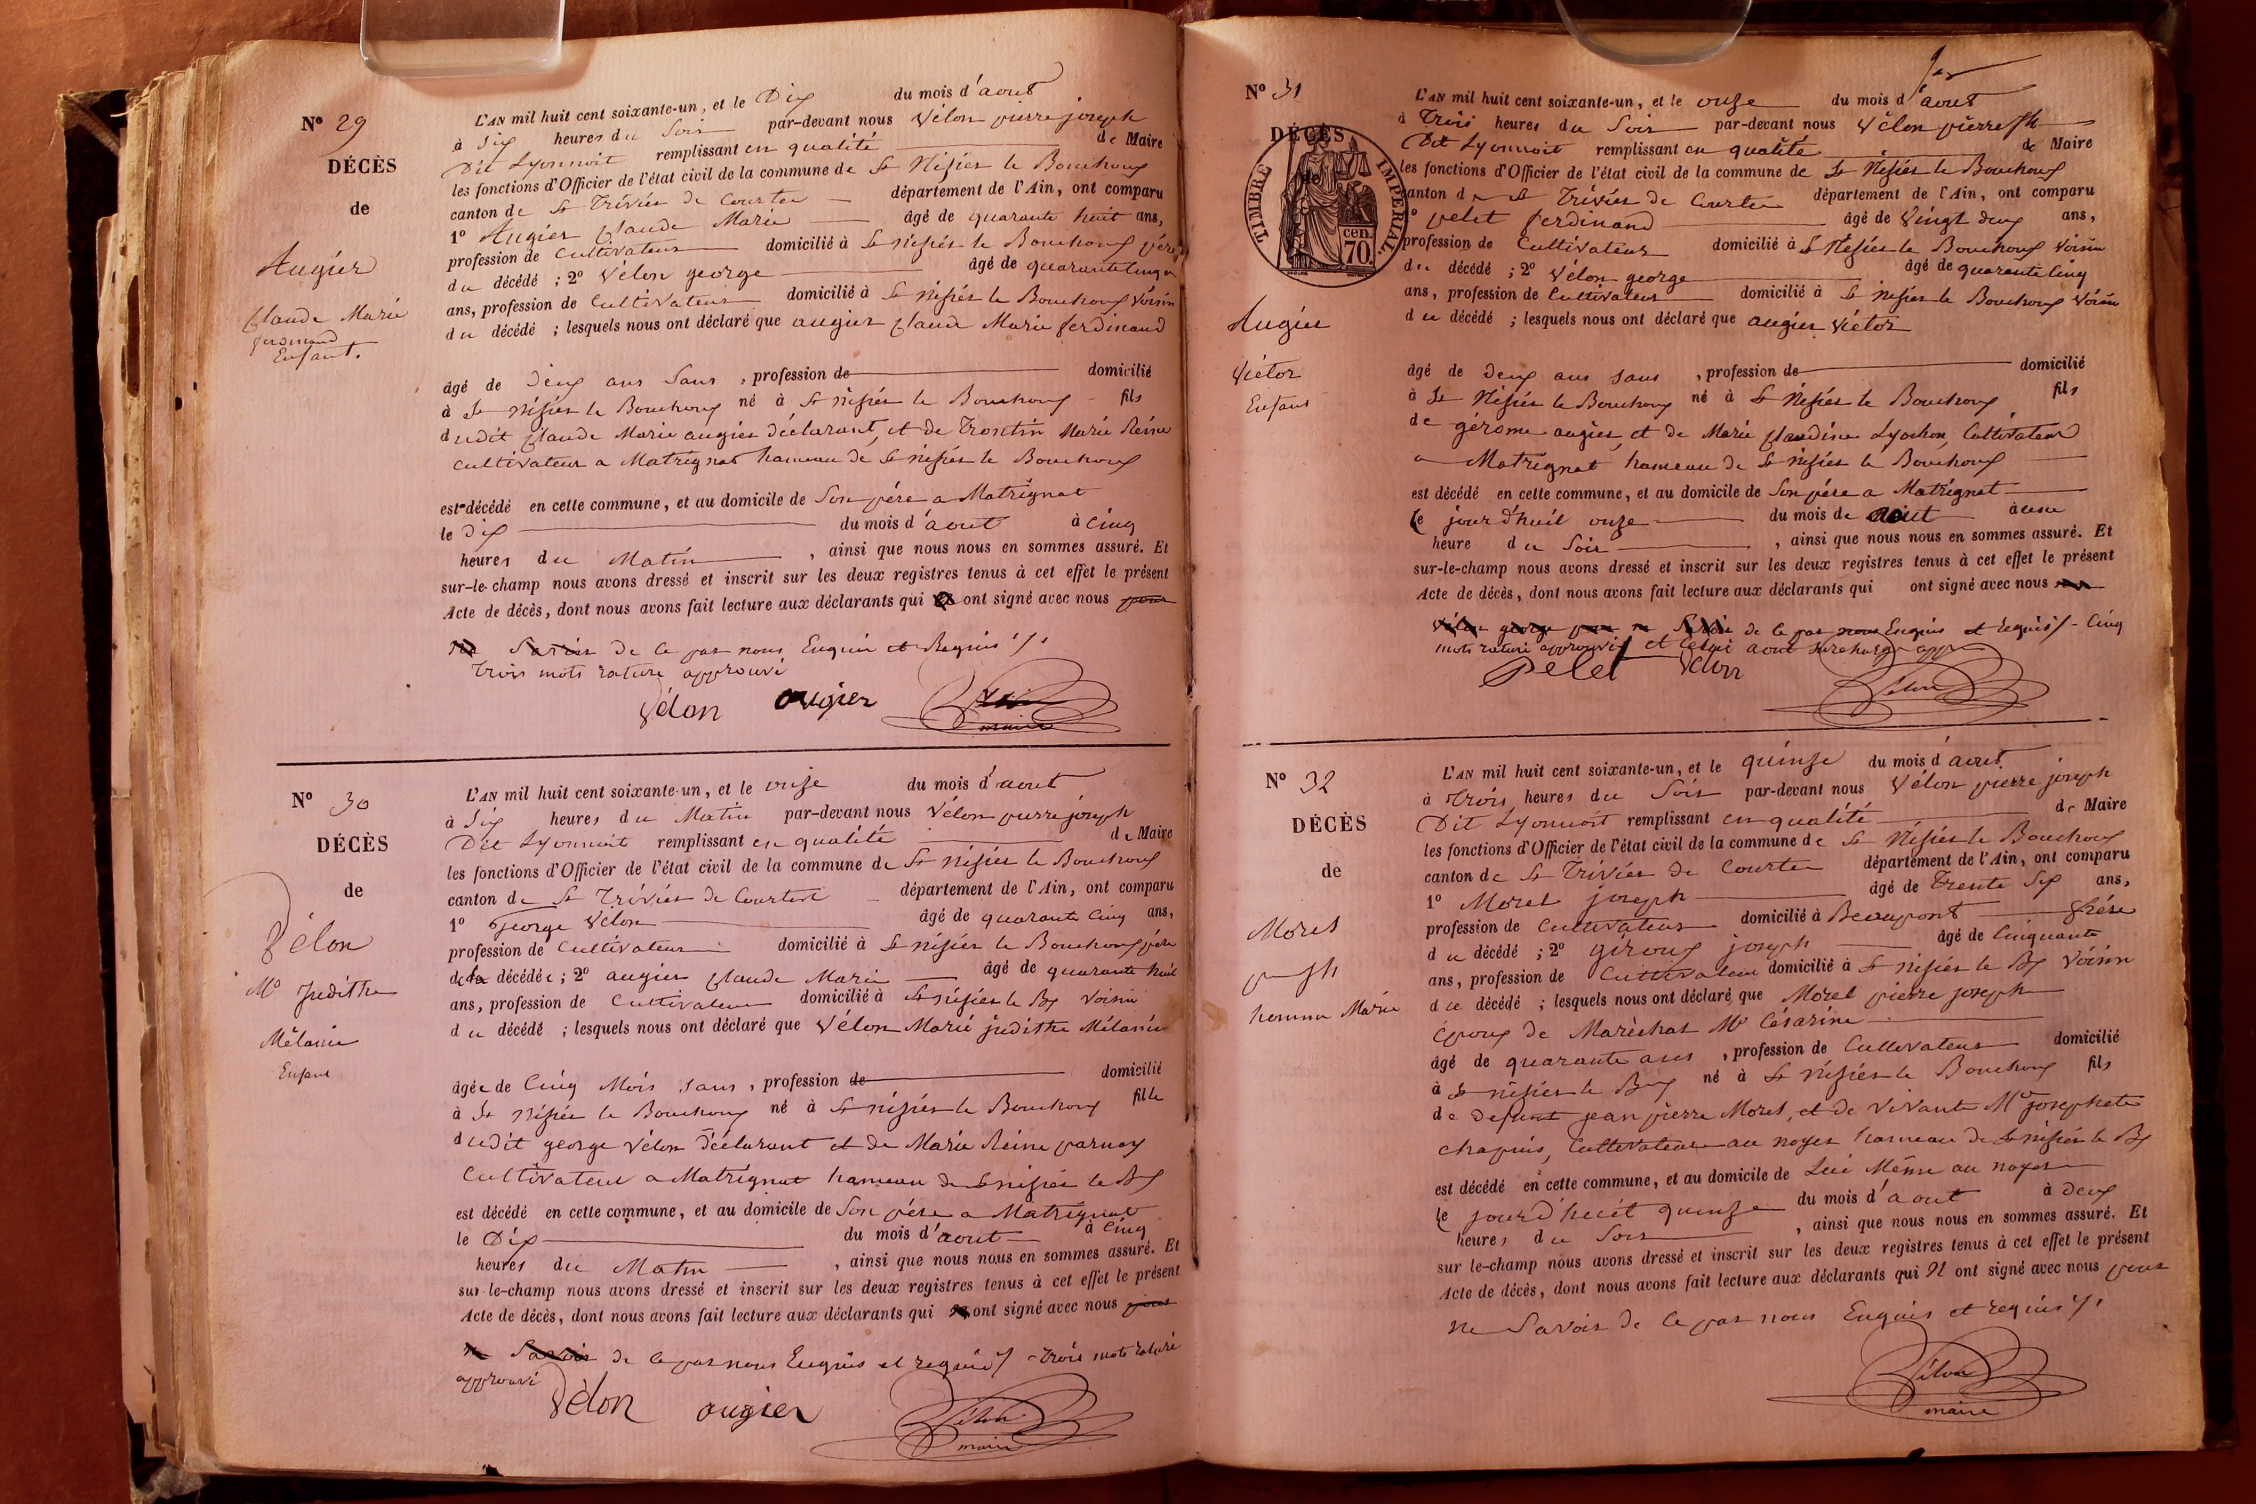 Nº 29
DÉCÈS
de
Augier
Claude Marie
ferdinand
Enfant.
L'AN mil huit cent soixante-un, et le Dix du mois d'aout
à Six heures du Soir par-devant nous Vélon pierre joseph
Dit Lyonnoit remplissant en qualité de Maire
les fonctions d'Officier de l'état civil de la commune de St Nisier le Bouchoux
canton de St Trivier de Courte département de l'Ain, ont comparu
1º Augier Claude Marie âgé de quarante huit ans,
profession de Cultivateur domicilié à St nisier le Bouchoux père
du décédé ; 2º Vélon george âgé de quarante cinq
ans, profession de Cultivateur domicilié à St nisier le Bouchoux Voisin
du décédé ; lesquels nous ont déclaré que augier Claude Marie ferdinand
âgé de Deux ans Sans , profession de domicilié
à St Nisier le Bouchoux né à St nisier le Bouchoux fils
dudit Claude Marie augier déclarant, et de Marie Reine
cultivateur a Matrignat hameau de St nisier le Bouchoux
est décédé en cette commune, et au domicile de Son père a Matrignat
le Dix du mois d'aout à Cinq
heures du Matin , ainsi que nous nous en sommes assuré. Et
sur-le-champ nous avons dressé et inscrit sur les deux registres tenus à cet effet le présent
Acte de décès, dont nous avons fait lecture aux déclarants qui ont signé avec nous pour
ne Savoir de ce par nous Enquis et Requis
trois mots rature approuvé
Vélon augier Vélon
maire
Nº 30
DÉCÈS
de
Vélon
Mie Judithe
Mélanie
Enfant
L'AN mil huit cent soixante-un, et le onze du mois d'aout
à Six heures du Matin par-devant nous Vélon pierre joseph
Dit Lyonnoit remplissant en qualité de Maire
les fonctions d'Officier de l'état civil de la commune de St nisier le Bouchoux
canton de St Trivier de Courte département de l'Ain, ont comparu
1º George Vélon âgé de quarante cinq ans,
profession de Cultivateur domicilié à St nisier le Bouchoux père
de la décédée ; 2º augier Claude Marie âgé de quarante huit
ans, profession de Cultivateur domicilié à St nisier le Bx Voisin
du décédé ; lesquels nous ont déclaré que Vélon Marie judithe Mélanie
âgée de Cinq Mois Sans , profession de domicilié
à St Nisier le Bouchoux né à St nisier le Bouchoux fille
dudit george Vélon Déclarant et de Marie Reine
Cultivateur a Matrignat hameau de St nisier le Bx
est décédé en cette commune, et au domicile de Son père a Matrignat
le Dix du mois d'aout à Cinq
heures du Matin , ainsi que nous nous en sommes assuré. Et
sur-le-champ nous avons dressé et inscrit sur les deux registres tenus à cet effet le présent
Acte de décès, dont nous avons fait lecture aux déclarants qui ont signé avec nous pour
ne Savoir de ce par nous Enquis et requis - trois mots raturé
approuvé
Vélon augier Vélon
maire
Nº 31
DÉCÈS
de
TIMBRE IMPÉRIAL
70 cen.
Augier
Victor
Enfant
L'AN mil huit cent soixante-un, et le onze du mois d'aout
à Trois heures du Soir par-devant nous Vélon pierre jph
Dit Lyonnoit remplissant en qualité de Maire
les fonctions d'Officier de l'état civil de la commune de St Nisier le Bouchoux
canton de St Trivier de Courte département de l'Ain, ont comparu
1º pelet ferdinand âgé de Vingt deux ans,
profession de Cultivateur domicilié à St Nisier le Bouchoux Voisin
du décédé ; 2º Vélon george âgé de quarante Cinq
ans, profession de Cultivateur domicilié à St nisier le Bouchoux Voisin
du décédé ; lesquels nous ont déclaré que augier Victor
âgé de Deux ans Sans , profession de domicilié
à St Nisier le Bouchoux né à St Nisier le Bouchoux fils
de gérome augier, et de Marie Claudine Lyochon, Cultivateur
a Matrignat hameau de St nisier le Bouchoux
est décédé en cette commune, et au domicile de Son père a Matrignat
le jourd'huit onze du mois de aout à une
heure du Soir , ainsi que nous nous en sommes assuré. Et
sur-le-champ nous avons dressé et inscrit sur les deux registres tenus à cet effet le présent
Acte de décès, dont nous avons fait lecture aux déclarants qui ont signé avec nous
Vélon george pour ne Savoir de ce par nous Enquis et requis - Cinq
mots raturé approuvé et celui aout surchargé app
pelet Vélon
Vélon
Nº 32
DÉCÈS
de
Morel
p jph
homme Marié
L'AN mil huit cent soixante-un, et le quinze du mois d'aout
à Trois heures du Soir par-devant nous Vélon pierre joseph
Dit Lyonnoit remplissant en qualité de Maire
les fonctions d'Officier de l'état civil de la commune de St Nisier le Bouchoux
canton de St Trivier de Courte département de l'Ain, ont comparu
1º Morel joseph âgé de Trente Six ans,
profession de Cultivateur domicilié à Beaupont frère
du décédé ; 2º giroux joseph âgé de Cinquante
ans, profession de Cultivateur domicilié à St nisier le Bx Voisin
du décédé ; lesquels nous ont déclaré que Morel pierre joseph
Époux de Maréchal Mie Césarine
âgé de quarante ans , profession de Cultivateur domicilié
à St nisier le Bx né à St Nisier le Bouchoux fils
de defunt jean pierre Morel, et de vivante Mie josephete
Chapuis, Cultivateur au noyer hameau de St nisier le Bx
est décédé en cette commune, et au domicile de Lui Même au noyer
le jourd'huit quinze du mois d'aout à deux
heures du Soir , ainsi que nous nous en sommes assuré. Et
sur le-champ nous avons dressé et inscrit sur les deux registres tenus à cet effet le présent
Acte de décès, dont nous avons fait lecture aux déclarants qui N ont signé avec nous pour
ne Savoir de ce par nous Enquis et requis
Vélon
maire